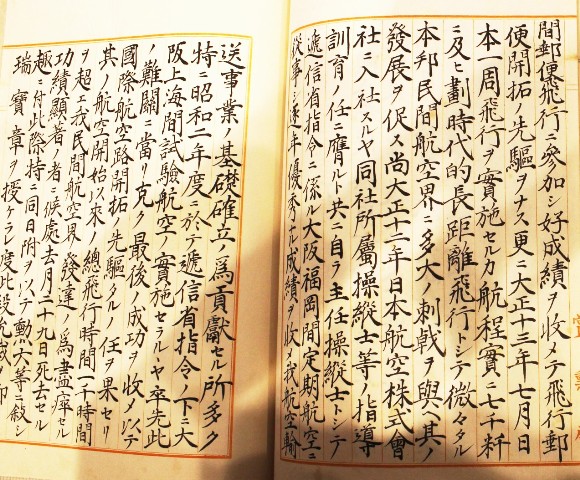 間郵便飛行ニ參加シ好成績ヲ收メテ飛行郵
便開拓ノ先驅ヲナス更ニ大正十三年七月日
本一周飛行ヲ實施セルカ航程實ニ七千粁
ニ及ヒ劃時代的長距離飛行トシテ微々タル
本邦民間航空界ニ多大ノ刺戟ヲ與ヘ其ノ
發展ヲ促ス尚大正十二年日本航空株式會
社ニ入社スルヤ同社所屬操縱士等ノ指導
訓育ノ任ニ膺ルト共ニ自ラ主任操縱士トシテ
遞信省指令ニ係ル大阪福岡間定期航空ニ
從事シ逐年優秀ナル成績ヲ收メ我航空輸
送事業ノ基礎確立ノ爲貢獻セル所多ク
特ニ昭和二年度ニ於テ遞信省指令ノ下ニ大
阪上海間試驗航空ノ實施セラルヽヤ卒先此
ノ難關ニ當リ克ク最後ノ成功ヲ收メ以テ
國際航空路開拓ノ先驅タルノ任ヲ果セリ
其ノ航空開始以來ノ總飛行時間二千時間
ヲ超エ我民間航空界ノ發達ノ爲盡瘁セル
功績顯著ノ者ニ候處去月二十九日死去セル
趣ニ付此際特ニ同日附ヲ以テ勲六等ニ敍シ
瑞寶章ヲ授ケラレ度此段允裁ヲ仰